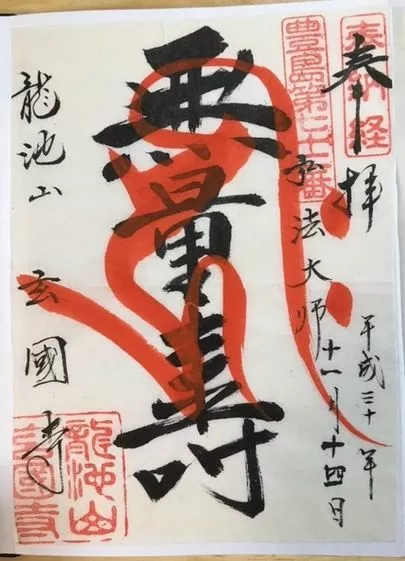 奉拝
平成三十年
弘法大师
十一月十四日
無量壽
龍池山 玄國寺
奉納経
豊島第
番
龍池山
玄國寺